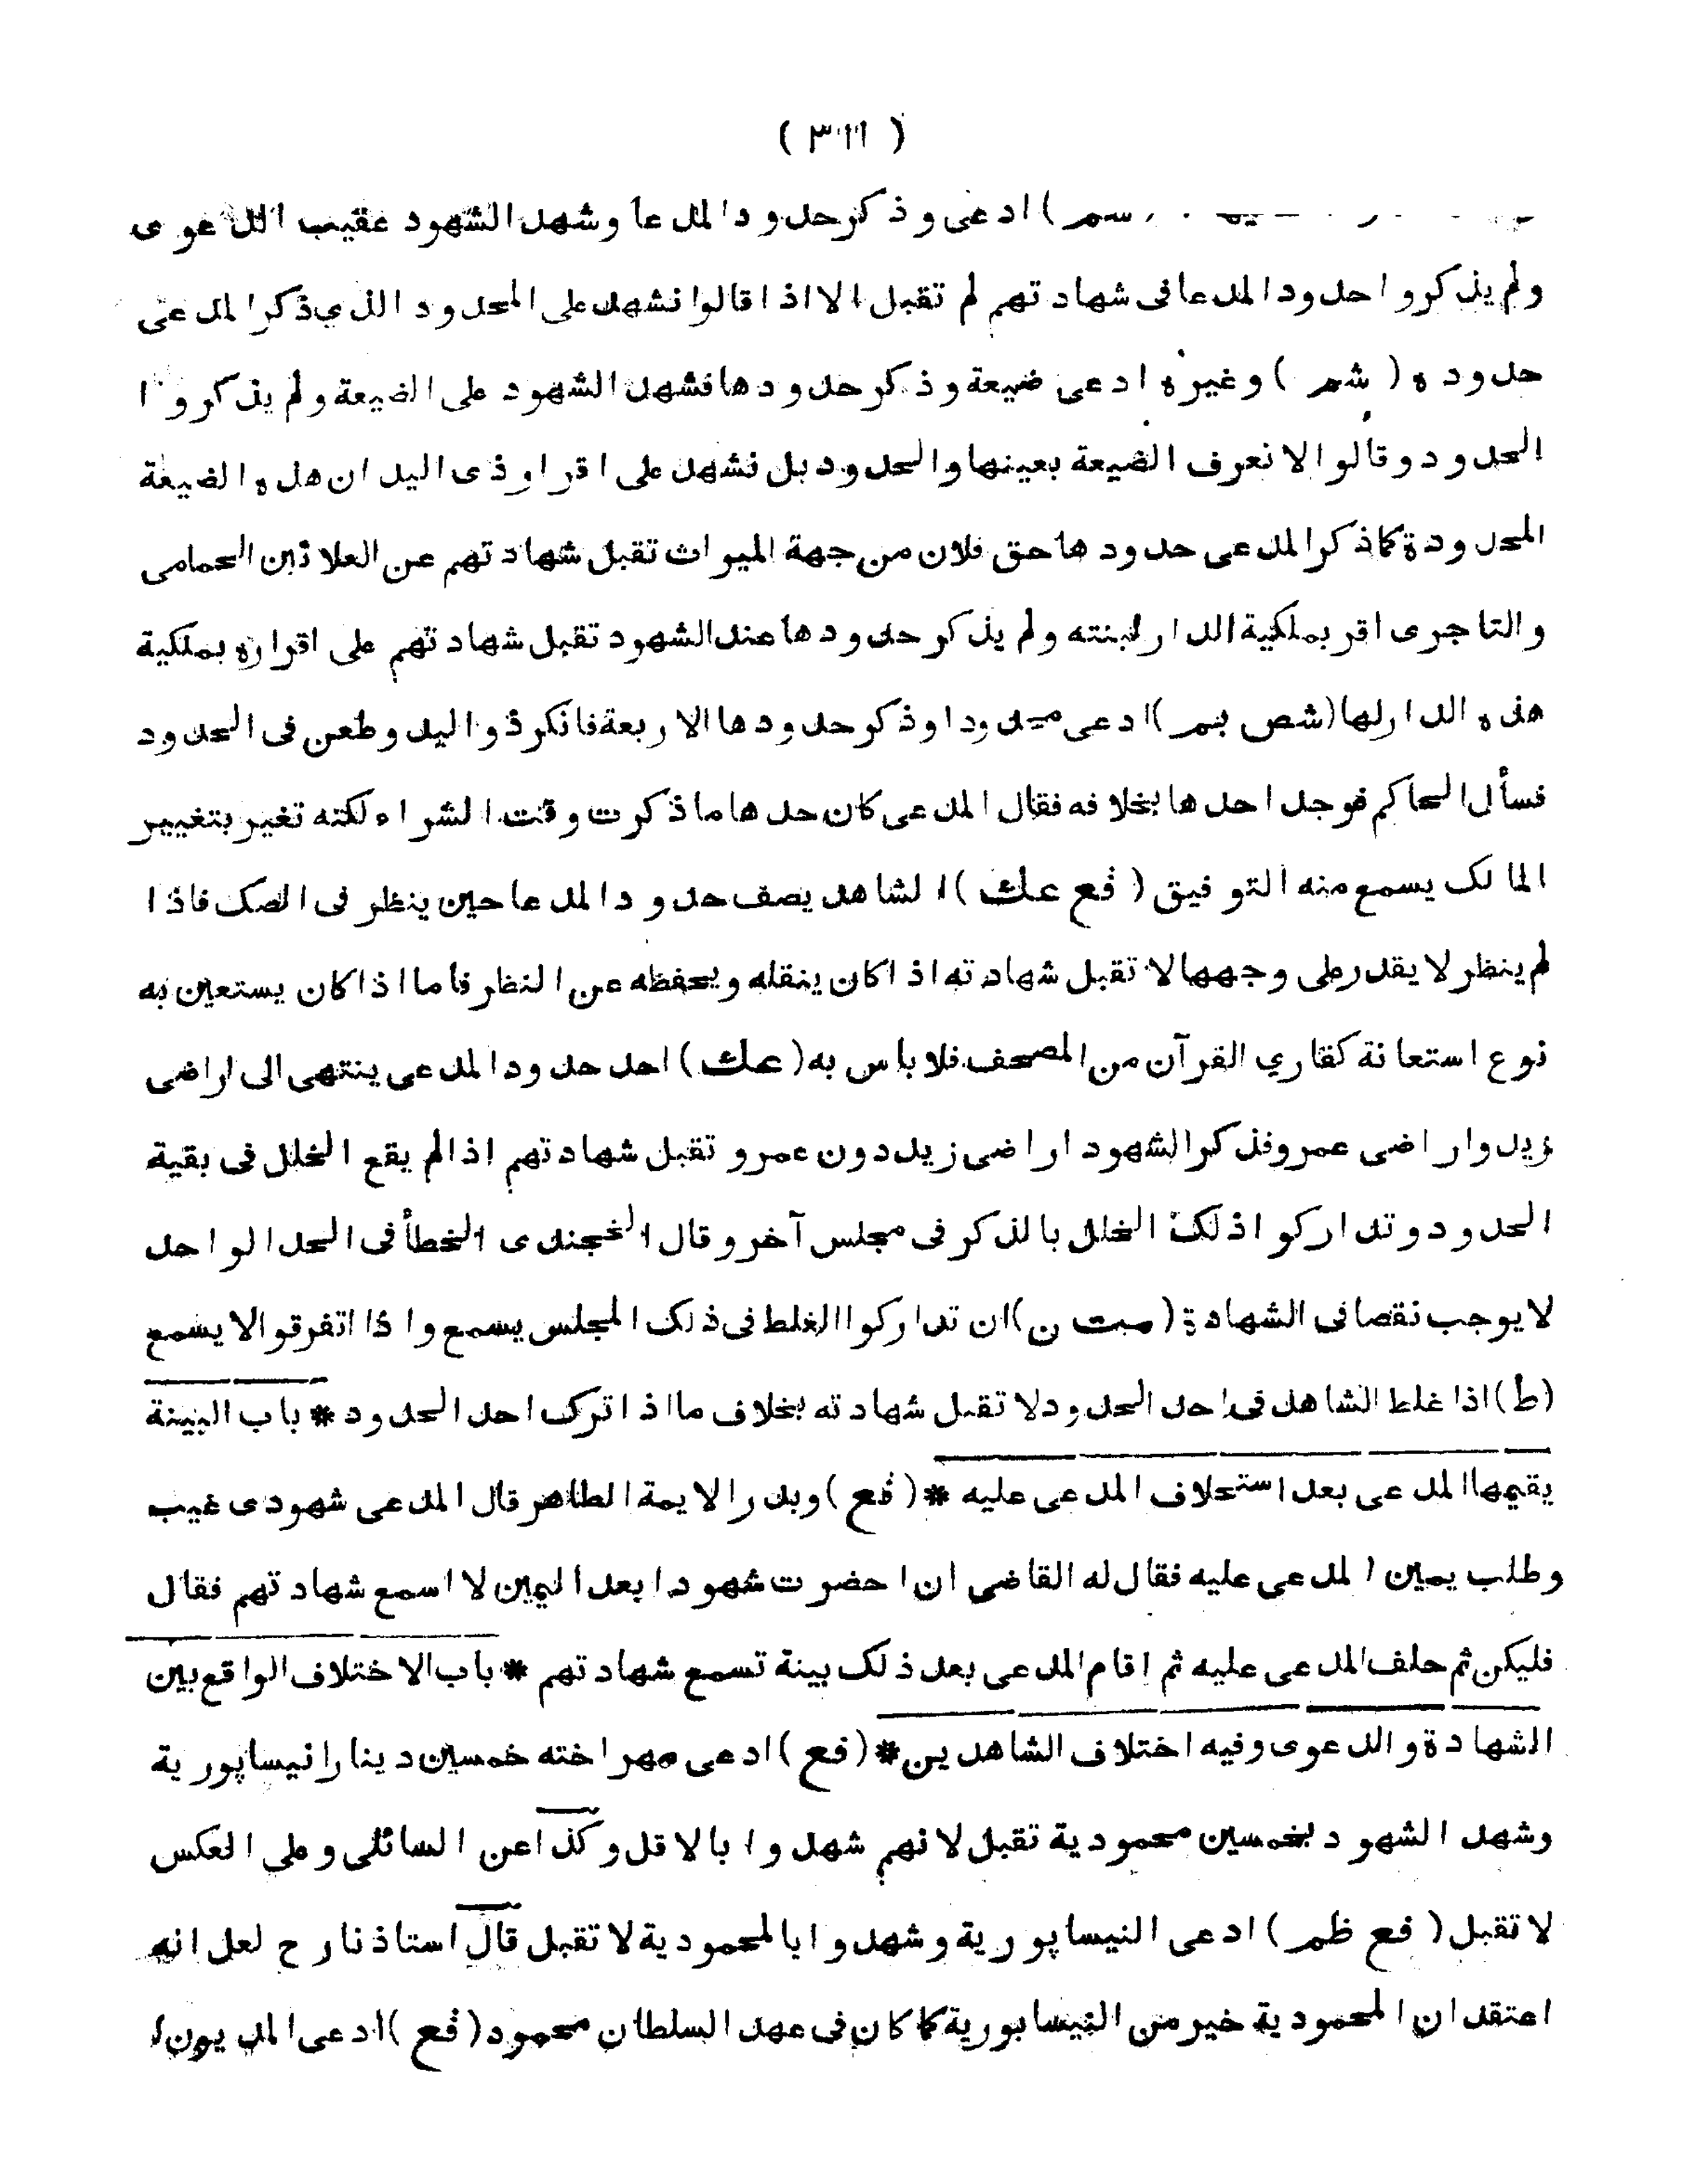 ( ٣١١ )
سم ) ادعى و ذكر حدود المدعا وشهد الشهود عقيب الدعوى
ولم يذكروا حدود المدعا فى شهادتهم لم تقبل الا اذا قالوا نشهد على المحدود الذي ذكر المدعى
حدوده ( شم ) وغيره ادعى ضيعة وذكر حدودها فشهد الشهود على الضيعة ولم يذكروا
الحدود وقالوا لا نعرف الضيعة بعينها والحدود بل نشهد على اقرار ذى اليد ان هذه الضيعة
المحدودة كما ذكر المدعى حدودها حق فلان من جهة الميراث تقبل شهادتهم عن العلائين الحمامى
والتاجرى اقر بملكية الدار لبنته ولم يذكر حدودها عند الشهود تقبل شهادتهم على اقراره بملكية
هذه الدار لها (شص بم) ادعى محدودا وذكر حدودها الاربعة فانكر ذو اليد وطعن فى الحدود
فسأل الحاكم فوجد احدها بخلافه فقال المدعى كان حدها ما ذكرت وقت الشراء لكنه تغير بتغيير
المالك يسمع منه التوفيق ( فع عك ) الشاهد يصف حدود المدعا حين ينظر فى الصك فاذا
لم ينظر لا يقدر على وجهها لا تقبل شهادته اذا كان ينقله ويحفظه عن النظر فاما اذا كان يستعين به
نوع استعانة كقاري القرآن من المصحف فلا باس به ( عك ) احد حدود المدعى ينتهى الى اراضى
زيد واراضى عمرو فذكر الشهود اراضى زيد دون عمرو تقبل شهادتهم اذا لم يقع الخلل فى بقية
الحدود وتداركوا ذلك الخلل بالذكر فى مجلس آخر وقال الخجندى الخطأ فى الحد الواحد
لا يوجب نقصا فى الشهادة ( مت ن ) ان تداركوا الغلط فى ذلك المجلس يسمع واذا اتفرقوا لا يسمع
(ط) اذا غلط الشاهد فى احد الحدود لا تقبل شهادته بخلاف ما اذا ترك احد الحدود * باب البينة
يقيمها المدعى بعد استحلاف المدعى عليه * ( فع ) وبدر الايمة الطاهر قال المدعى شهودى غيب
وطلب يمين المدعى عليه فقال له القاضى ان احضرت شهودا بعد اليمين لا اسمع شهادتهم فقال
فليكن ثم حلف المدعى عليه ثم اقام المدعى بعد ذلك بينة تسمع شهادتهم * باب الاختلاف الواقع بين
الشهادة والدعوى وفيه اختلاف الشاهدين * ( فع ) ادعى مهر اخته خمسين دينارا نيساپورية
وشهد الشهود بخمسين محمودية تقبل لانهم شهدوا بالاقل وكذا عن السائلى وعلى العكس
لا تقبل ( فع ظم ) ادعى النيساپورية وشهدوا بالمحمودية لا تقبل قال استاذنا رح لعل انه
اعتقد ان المحمودية خير من النيسابورية كما كان فى عهد السلطان محمود ( فع ) ادعى المديون